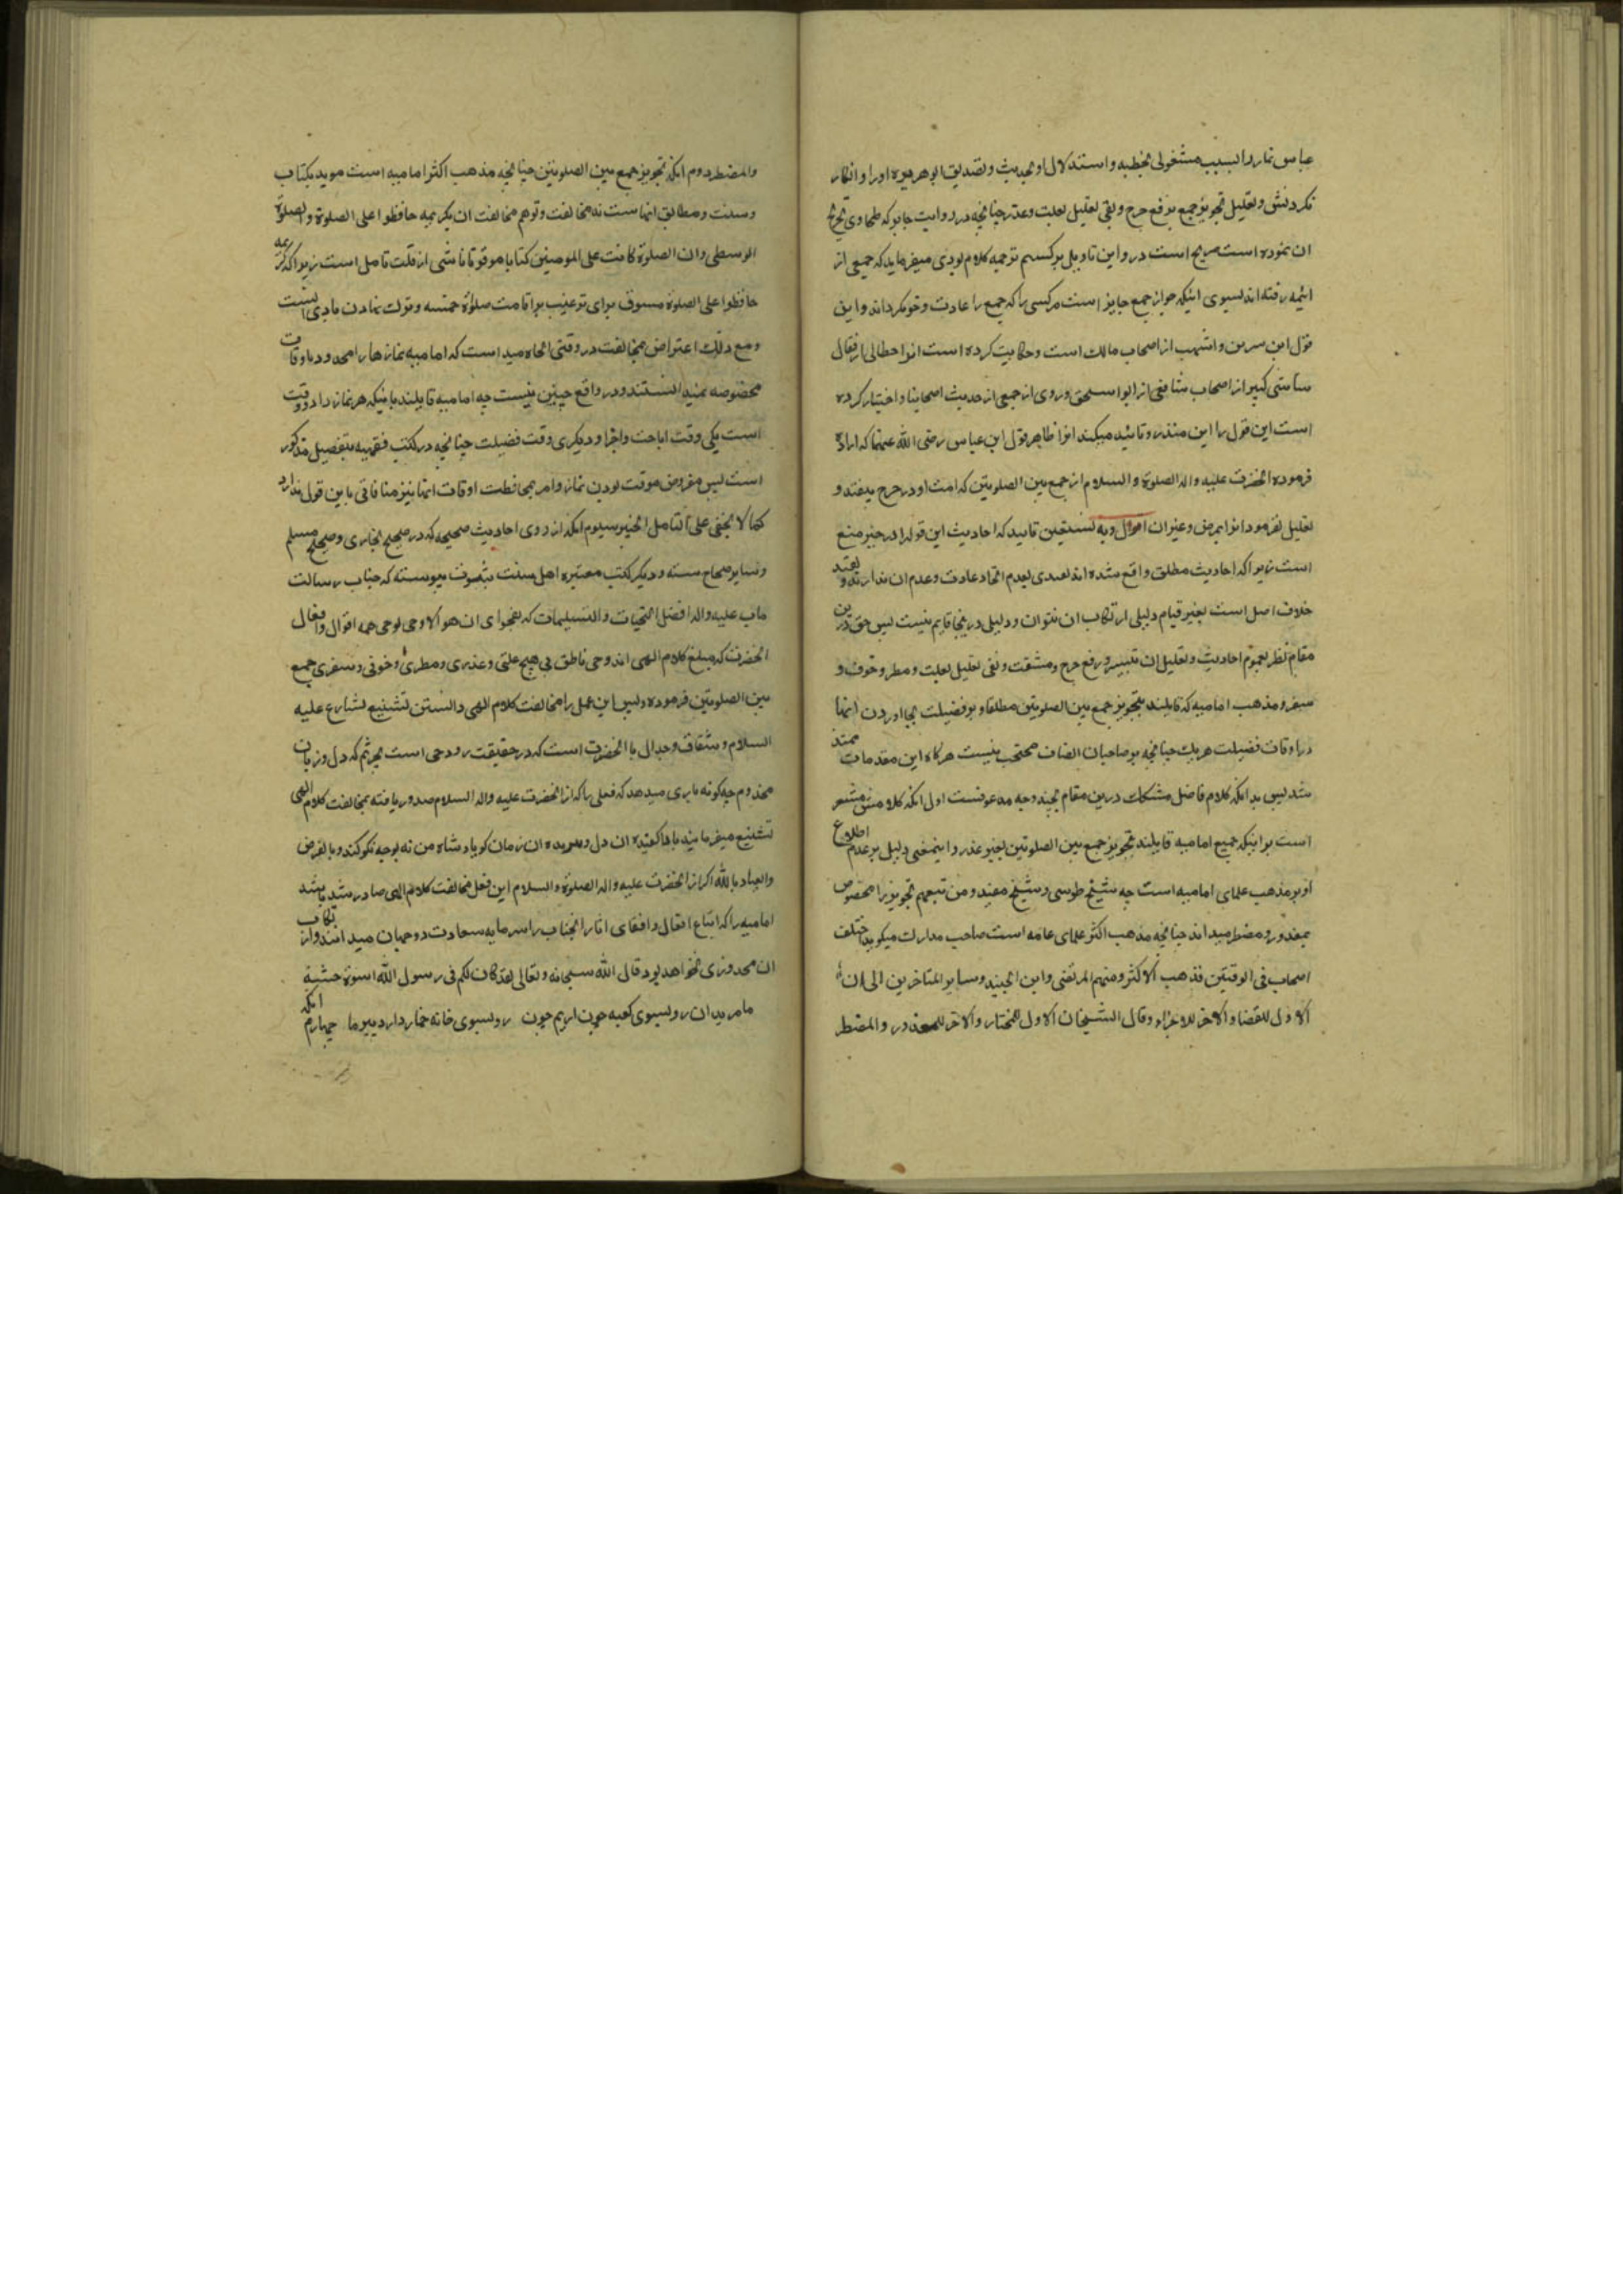 عباس نماز را بسبب مشغولی بخطبه و استدلال او بحدیث و تصدیق ابو هریره او را و انکار
نکردنش و تعلیل تجویز جمع برفع حرج و نفی تعلیل بعلت و عذر چنانچه در روایت جابر که طحاوی تخریج
ان نموده است صریح است در و این تاویل برکسیم ترجمه کلام نودی میفرماید که جمیعی از
ائمه رفته اند بسوی اینکه جواز جمع جایز است مر کسی را که جمع را عادت و خو نکرداند و این
قول ابن سرین و اشهب از اصحاب مالک است و حکایت کرده است انرا خطابی از قفال
شاشی کبیر از اصحاب شافعی از ابو اسحق مروزی از جمعی از حدیث اصحابنا و اختیار کرده
است این قول را ابن منذر و تائید میکند انرا ظاهر قول ابن عباس رضی الله عنهما که اراده
فرموده انحضرت علیه و اله الصلوة و السلام از جمع بین الصلوتین که امت او در حرج نیفتد و
تعلیل نفرمود انرا بمرض و غیر ان اقول و به نستعین تایید که احادیث این قول را در حیز منع
است زیرا که احادیث مطلق واقع شده اند تعبدی بعدم اتخاد عادت و عدم ان ندارند و تقیید
خلاف اصل است بغیر قیام دلیلی ارتکاب ان نتوان و دلیلی درینجا قایم نیست پس حق درین
مقام نظر بعموم احادیث و تعلیل ان بتیسیر و رفع حرج و مشقت و نفی تعلیل بعلت و مطر و خوف و
سفر و مذهب امامیه که قایلند بتجویز جمع بین الصلوتین مطلقا و بر فضیلت بجا اوردن انها
در اوقات فضیلت هر یک چنانچه بر صاحبان انصاف محتجب نیست هرکاه این مقدمات ممهد
شد پس بدانکه کلام فاضل مشکک درین مقام بچند وجه مدعوفست اول انکه کلامش مشعر
است بر اینکه جمیع امامیه قایلند بتجویز جمع بین الصلوتین بغیر عذر و اینمعنی دلیل بر عدم اطلاع
او بر مذهب علمای امامیه است چه شیخ طوسی و شیخ مفید و من تبعهم تجویز را مخصوص
بمعذور و مضطر میدانند چنانچه مذهب اکثر علمای عامه است صاحب مدارک میکوید اختلف
اصحاب فی الوقتین فذهب الاکثر و منهم المرتضی و ابن الجنید و سایر المتاخرین الی ان
الاول للفضل و الاخر للاجزاء و قال الشیخان الاول للمختار و الاخر للمعذور و المضطر
والمضطر دوم انکه تجویز جمع بین الصلوتین چنانچه مذهب اکثر امامیه است موید بکتاب
و سنت و مطابق انهاست نه مخالفت و توهم مخالفت ان بکریمه حافظوا علی الصلوة و الصلوة
الوسطی و ان الصلوة کانت علی المومنین کتابا موقوتا ناشی از قلت تامل است زیرا که کریمه
حافظوا علی الصلوة مسوق برای ترغیب بر اقامت صلوة خمسه و ترک نمودن مادی نیست
و مع ذلک اعتراض مخالفت در وقتی اتجاه میداست که امامیه نمازها را محدود باوقات
مخصوصه نمیدانستند و در واقع چنین نیست چه امامیه قایلند باینکه هر نماز را دو وقت
است یکی وقت اباحت و اجزا و دیکری وقت فضیلت چنانچه در کتب فقهیه بتفصیل مذکور
است پس مفروض موقت بودن نماز و امر بمحافظت اوقات انها نیز منافاتی باین قول ندارد
کما لا یخفی علی المتامل الخبیر سیوم انکه از روی احادیث صحیحه که در صحیح بخاری و صحیح مسلم
و سایر صحاح سته و دیکر کتب معتبره اهل سنت بثبوت پیوسته که جناب رسالت
ماب علیه و اله افضل التحیات و التسلیمات که بفحوای ان هو الا وحی یوحی همه اقوال و افعال
انحضرت که مبلغ کلام الهی اند وحی ناطق بی هیچ علتی و عذری و مطری و خوفی و سفری جمع
بین الصلوتین فرموده و پس این عمل را مخالفت کلام الهی دانستن تشنیع بشارع علیه
السلام و شقاق و جدال با انحضرت است که در حقیقت رد وحی است بحیرتم که دل و زبان
مخدوم چه کونه یاری میدهد که فعلی را که از انحضرت علیه و اله السلام صدور یافته بمخالفت کلام الهی
تشنیع میفرمایند ان دل و ان زمان کو یادشاه من نه بوجه نکو کند و بالفرض
و العیاذ بالله اکر از انحضرت علیه و اله الصلوة و السلام این فعل مخالفت کلام الهی صادر شده باشد
امامیه را که اتباع افعال و اقفای اثار انجناب را سرمایه سعادت دو جهان میدانند و از ارتکاب
ان محذوری نخواهد بود قال الله سبحانه و تعالی لقد کان لکم فی رسول الله اسوة حسنة
ما مریدان رو بسوی کعبه چون اریم چون رو بسوی خانه خمار دارد پیر ما چهارم انکه